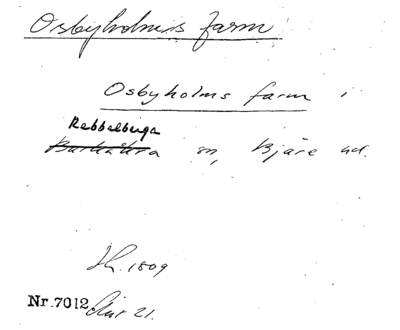 Osbyholms farm
Osbyholms farm i
Rebbelberga
sn, Bjäre hd.
1809
Nr. 7012
21.